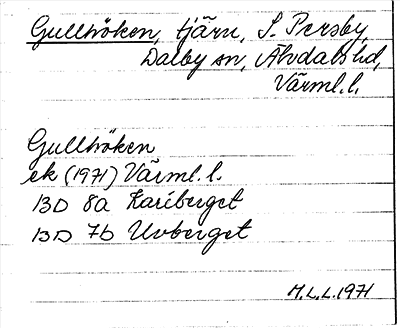 Gullhöken, tjärn, S. Persby,
Dalby sn, Älvdals hd,
Värml. l.
Gullhöken
ek (1971) Värml. l.
13D 8a Kariberget
13D 7b Uvberget
M.L.L. 1971